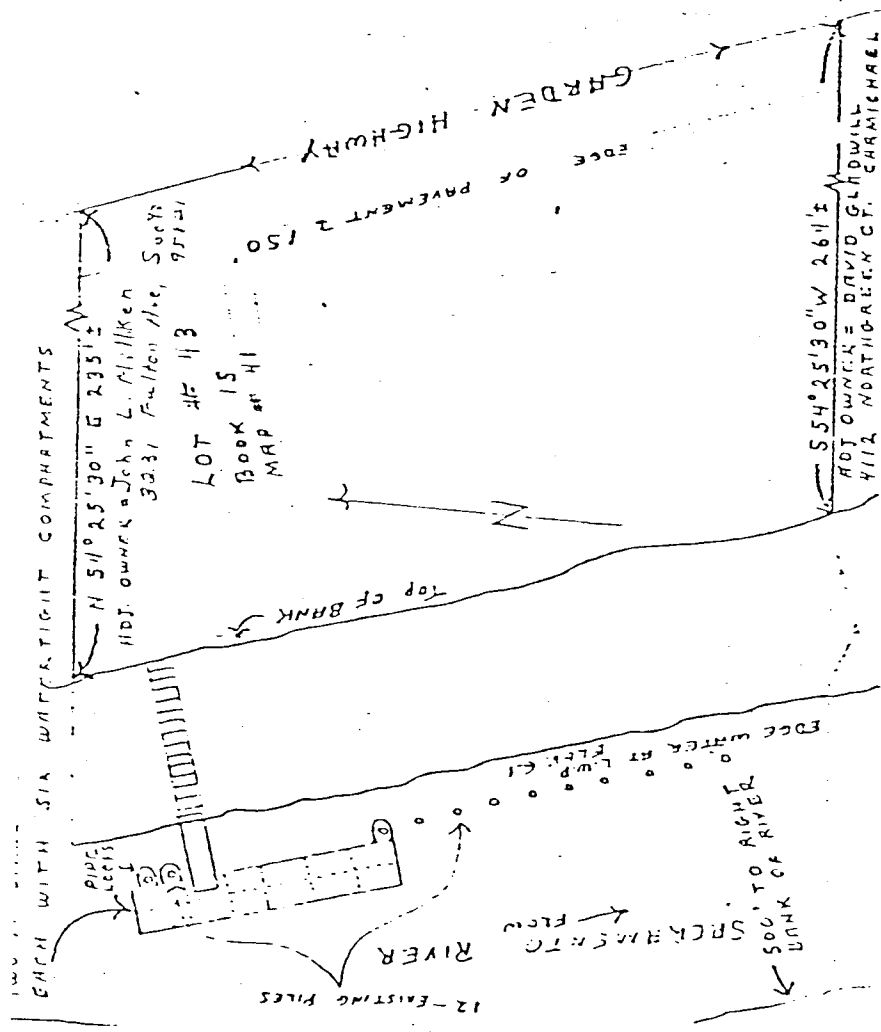 EACH WITH SIX WATERTIGHT COMPARTMENTS
N 54°25'30" E 235'±
ADJ. OWNER = John L. Milliken
3231 Fulton Ave,
LOT # 43
BOOK 15
MAP # 41
GARDEN HIGHWAY
EDGE OF PAVEMENT ± 150'
N
S 54°25'30" W 261'±
ADJ OWNER = DAVID GLADWILL
4112 NORTHGREEN CT. CHARMICHAEL
TOP OF BANK
EDGE WATER AT L.W.P.
SACRAMENTO RIVER
FLOW
500' TO RIGHT
BANK OF RIVER
12-EXISTING PILES